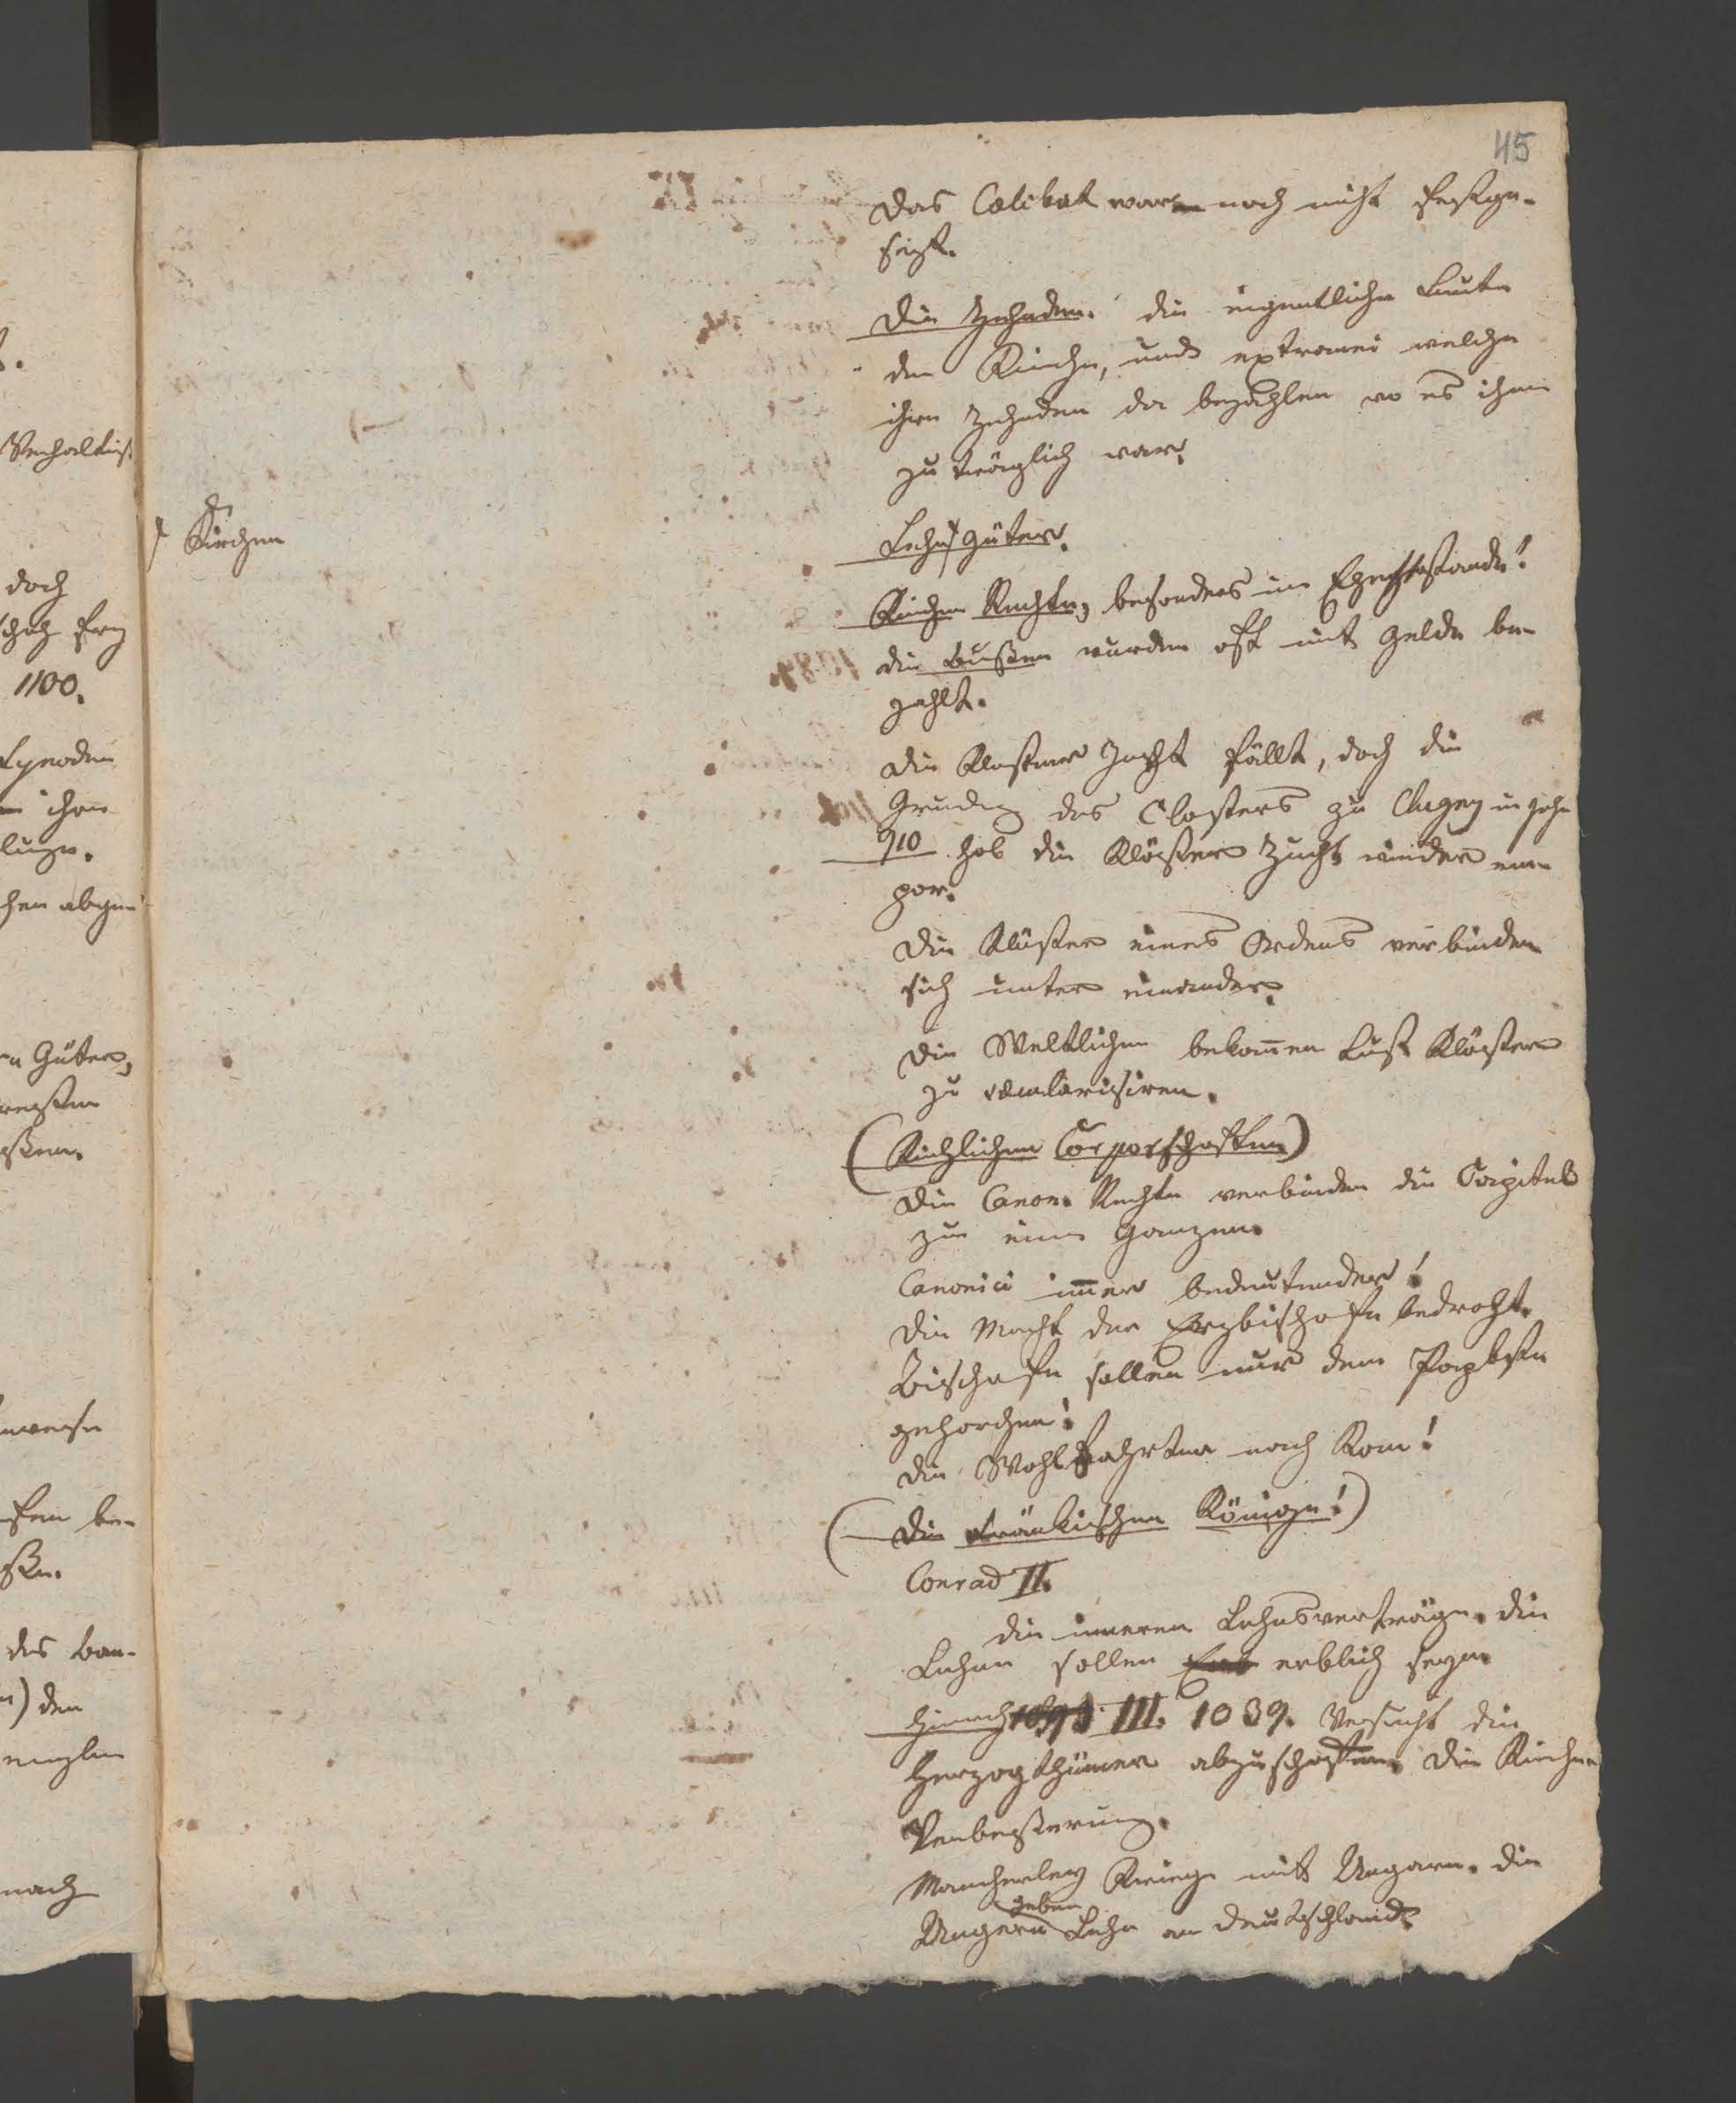 45
Das Cölibat war noch nicht festge-
setzt.
Die Zehnden. die eigentliche Leute
der Kirche, und extranei welche
ihren Zehnden da bezahlen wo es ihnen
zu träglich war.
Kirchen
Lehn Güter.
Kirchen Rechte, besonders im Ehestande!
die Bußen wurden oft mit Gelde be-
zahlt.
die Kloster Zucht fällt, doch die
Gründung des Closters zu Clugny im Jahr
910 hob die Klöster Zucht wieder em-
por.
Die Klöster eines Ordens verbinden
sich unter einander.
Die Weltlichen bekom̄en Lust Klöster
zu
(Kirchlichen Corporschaften)
Die Canon. Rechte verbinden die Capitel
zu einem Ganzen.
Canonici im̄er bedeutender!
Die Macht der Erzbischofe bedroht.
Bischofe sollen nur dem Pabste
gehorchen!
die Wohlfahrten nach Rom!
(Die Fränkischen Könige!)
Conrad II.
die inneren Lehnsverträge. die
Lehne sollen erblich seyn.
Heinrich III. 1039. Versucht die
Herzogthümer abzuschaffen. Die Kirchen
Verbeßerung.
Mancherley Kriege mit Ungarn. die
Ungern geben Lehn an Deutschland.
Verhältniß
doch
1100.
Synoden
ihren
Güter,
des Ban-
den
nach